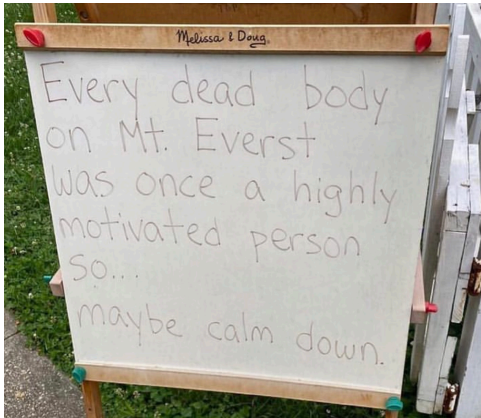 Melissa & Doug
Every dead body
on Mt. Everst
was once a highly
motivated person
so...
maybe calm down.